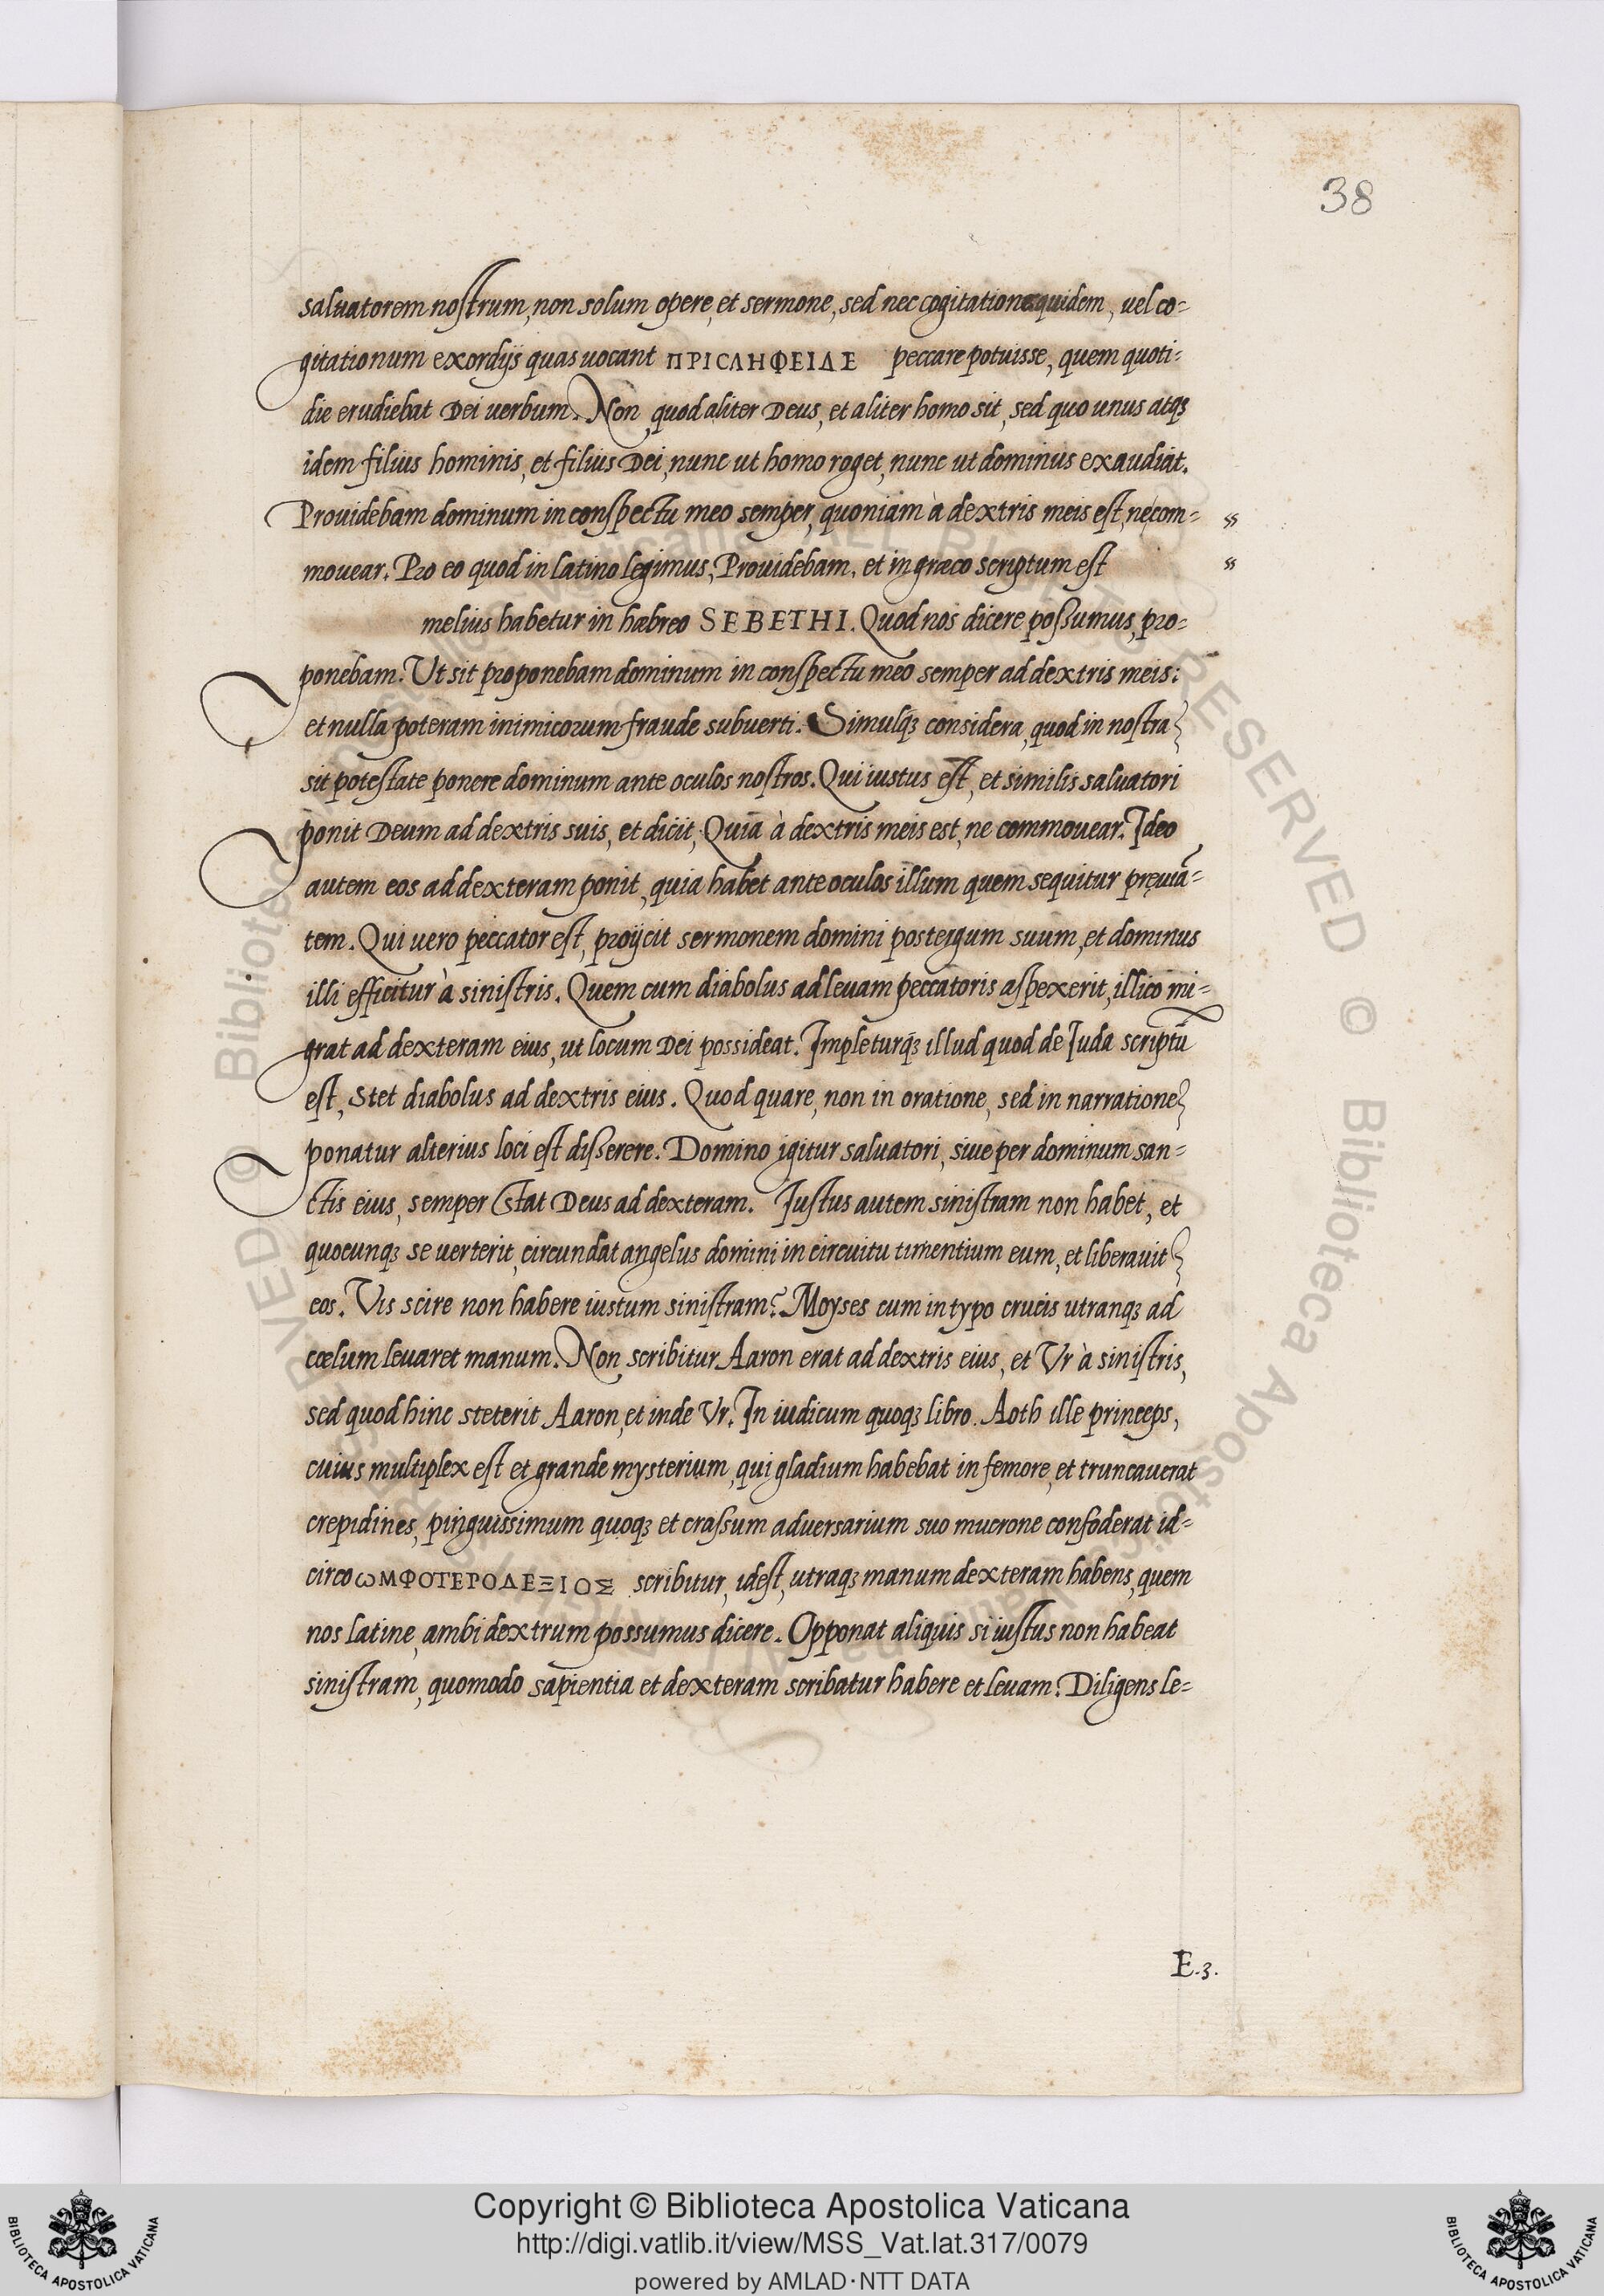 38
saluatorem nostrum, non solum opere, et sermone, sed nec cogitatione quidem, uel co=
gitationum exordijs quas uocant ΠΡΙСΛΗΦΕΙΔΕ peccare potuisse, quem quoti=
die erudiebat Dei uerbum. Non, quod aliter Deus, et aliter homo sit, sed quo unus atqꝫ
idem filius hominis, et filius Dei, nunc ut homo roget, nunc ut dominus exaudiat.
Prouidebam dominum in conspectu meo semper, quoniam à dextris meis est, ne com= «
mouear. Pro eo quod in latino legimus, Prouidebam, et in græco scriptum est «
melius habetur in hæbreo SEBETHI. Quod nos dicere possumus, pro=
ponebam. Ut sit proponebam dominum in conspectu meo semper ad dextris meis:
et nulla poteram inimicorum fraude subuerti. Simulqꝫ considera, quod in nostra
sit potestate ponere dominum ante oculos nostros. Qui iustus est, et similis saluatori
ponit Deum ad dextris suis, et dicit, Quia à dextris meis est, ne commouear. Ideo
autem eos ad dexteram ponit, quia habet ante oculos illum quem sequitur pręuiā=
tem. Qui uero peccator est, proijcit sermonem domini postergum suum, et dominus
illi efficitur à sinistris. Quem cum diabolus ad leuam peccatoris aspexerit, illico mi=
grat ad dexteram eius, ut locum Dei possideat. Impleturqꝫ illud quod de Iuda scriptū
est, Stet diabolus ad dextris eius. Quod quare, non in oratione, sed in narratione
ponatur alterius loci est disserere. Domino igitur saluatori, siue per dominum san=
ctis eius, semper stat Deus ad dexteram. Iustus autem sinistram non habet, et
quocunqꝫ se uerterit, circundat angelus domini in circuitu timentium eum, et liberauit
eos. Vis scire non habere iustum sinistram? Moyses cum in typo crucis utranqꝫ ad
cœlum leuaret manum. Non scribitur Aaron erat ad dextris eius, et Vr à sinistris,
sed quod hinc steterit Aaron, et inde Vr. In iudicum quoqꝫ libro. Aoth ille princeps,
cuius multiplex est et grande mysterium, qui gladium habebat in femore, et truncauerat
crepidines, pinguissimum quoqꝫ et crassum aduersarium suo mucrone confoderat id=
circo ωΜΦΟΤΕΡΟΔΕΞΙΟΣ scribitur, idest, utraqꝫ manum dexteram habens, quem
nos latine, ambidextrum possumus dicere. Opponat aliquis si iustus non habeat
sinistram, quomodo sapientia et dexteram scribatur habere et leuam? Diligens le=
E.3.
Copyright © Biblioteca Apostolica Vaticana
http://digi.vatlib.it/view/MSS_Vat.lat.317/0079
powered by AMLAD·NTT DATA
BIBLIOTECA APOSTOLICA VATICANA
BIBLIOTECA APOSTOLICA VATICANA